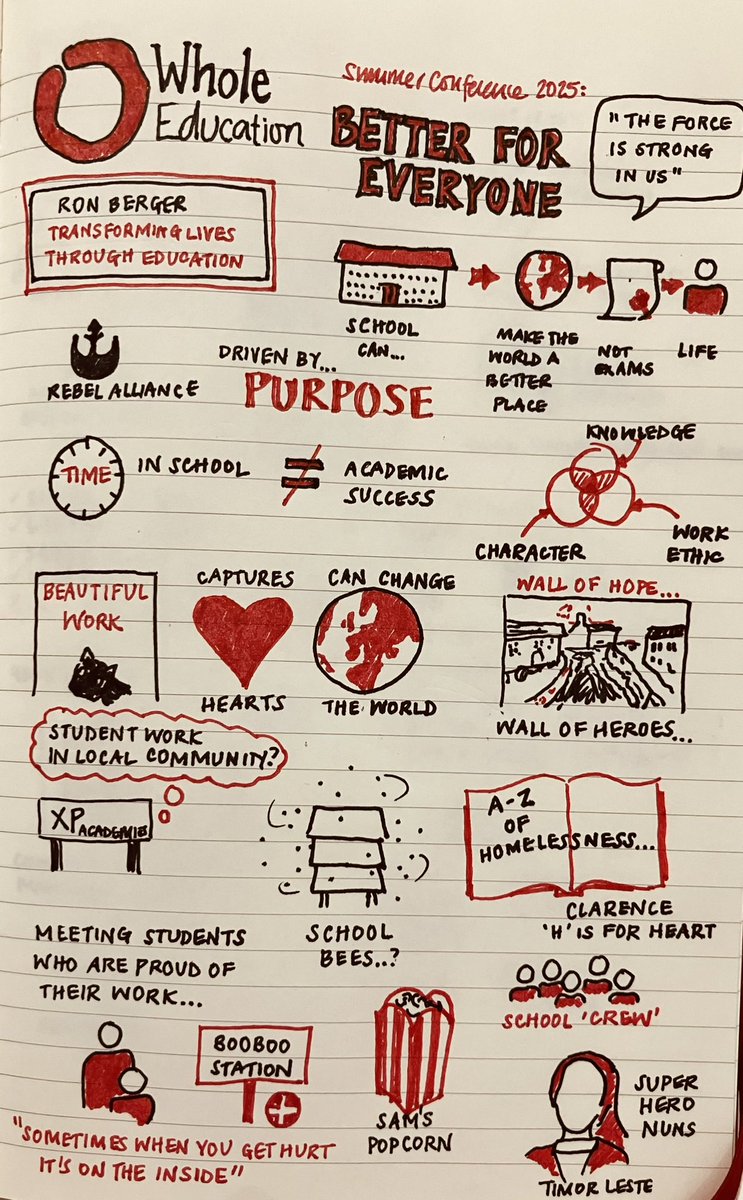 Whole
Education
Summer Conference 2025:
BETTER FOR
EVERYONE
"THE FORCE
IS STRONG
IN US"
RON BERGER
TRANSFORMING LIVES
THROUGH EDUCATION
SCHOOL
CAN...
MAKE THE
WORLD A
BETTER
PLACE
NOT
EXAMS
LIFE
REBEL ALLIANCE
DRIVEN BY...
PURPOSE
TIME
IN SCHOOL
≠
ACADEMIC
SUCCESS
KNOWLEDGE
CHARACTER
WORK
ETHIC
BEAUTIFUL
WORK
CAPTURES
HEARTS
CAN CHANGE
THE WORLD
WALL OF HOPE...
WALL OF HEROES...
STUDENT WORK
IN LOCAL COMMUNITY?
XP ACADEMIES
SCHOOL
BEES..?
A-Z
OF
HOMELESSNESS...
CLARENCE
'H' IS FOR HEART
MEETING STUDENTS
WHO ARE PROUD OF
THEIR WORK...
SCHOOL 'CREW'
BOOBOO
STATION
"SOMETIMES WHEN YOU GET HURT
IT'S ON THE INSIDE"
SAM'S
POPCORN
SUPER
HERO
NUNS
TIMOR LESTE